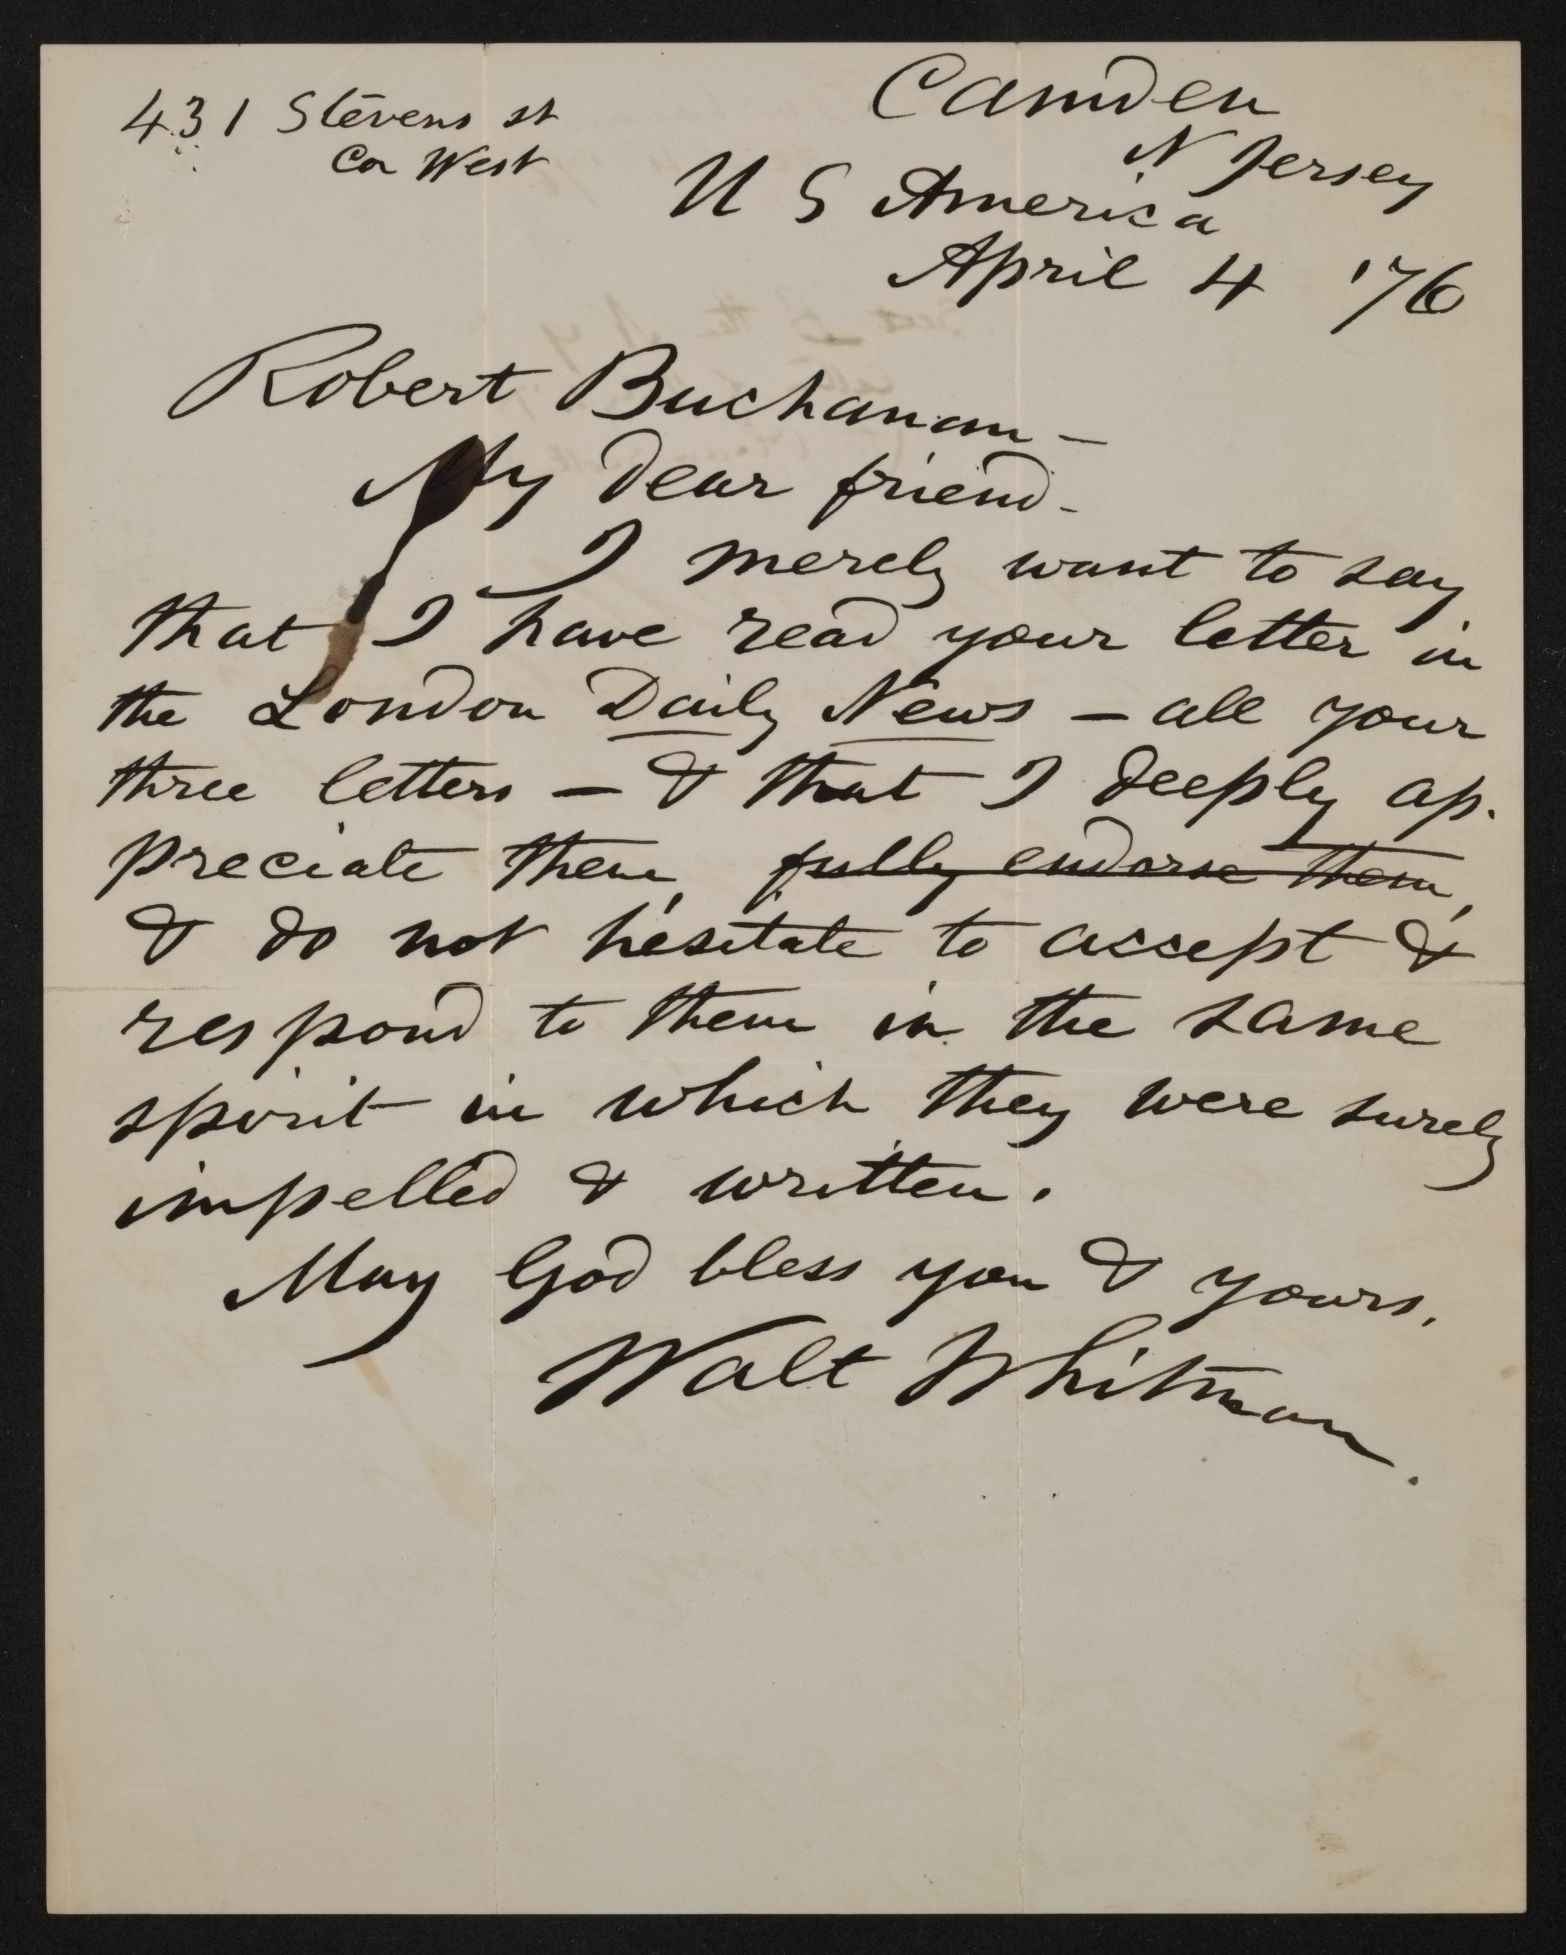 431 Stevens st
Cor West
Camden
N Jersey
U S America
April 4 '76
Robert Buchanan —
My dear friend -
I merely want to say
that I have read your letter in
the London Daily News — all your
three letters — & that I deeply ap-
preciate them, fully endorse them,
& do not hesitate to accept &
respond to them in the same
spirit in which they were surely
impelled & written.
May God bless you & yours,
Walt Whitman.